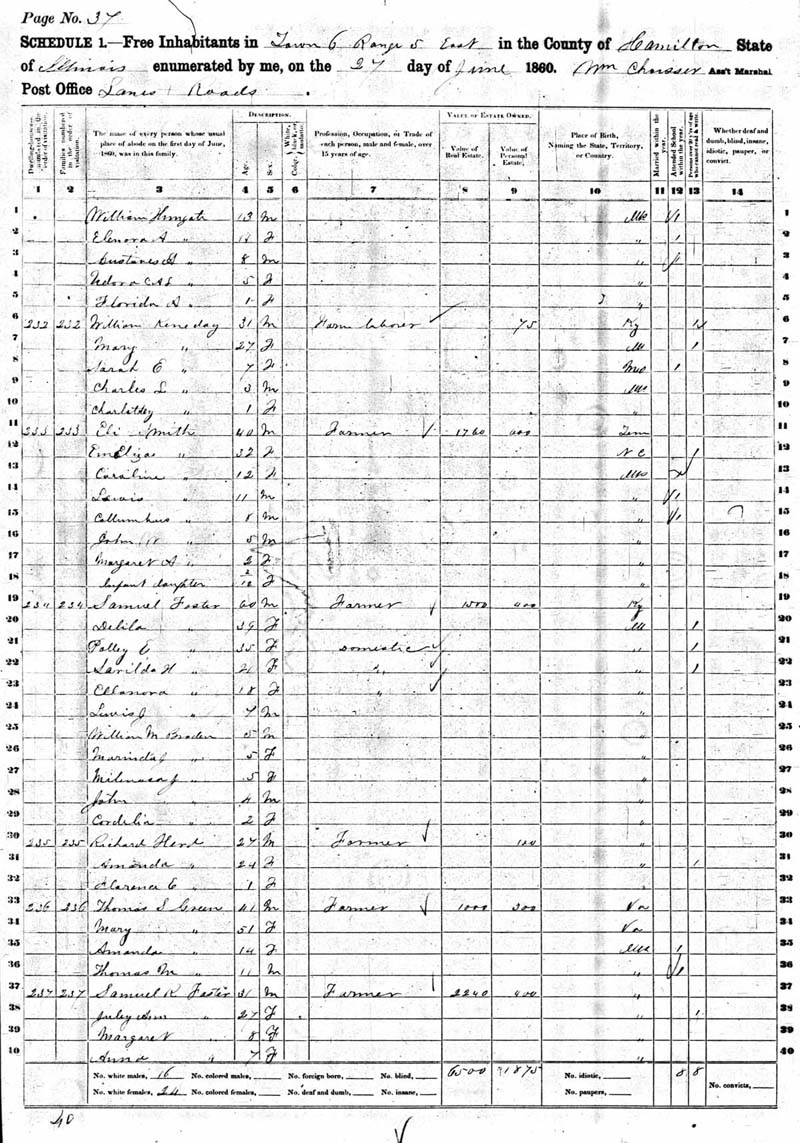 Page No. 37
SCHEDULE 1.—Free Inhabitants in Town 6 Range 5 East in the County of Hamilton State
of Illinois enumerated by me, on the 27 day of June 1860. Wm Ass't Marshal
Post Office Lanes X Roads.
DESCRIPTION. VALUE OF ESTATE OWNED.
Dwelling-houses numbered in the order of visitation. Families numbered in the order of visitation. The name of every person whose usual place of abode on the first day of June, 1860, was in this family. Age. Sex. White, black, or mulatto. Color. Profession, Occupation, or Trade of each person, male and female, over 15 years of age. Value of Real Estate. Value of Personal Estate. Place of Birth, Naming the State, Territory, or Country. Married within the year. Attended School within the year. Persons over 20 y'rs of age who cannot read & write. Whether deaf and dumb, blind, insane, idiotic, pauper, or convict.
1 2 3 4 5 6 7 8 9 10 11 12 13 14
1 William Hungate 13 M Ills 1 1
2 Elenora A " F " 1 2
3 Gustaves A " 8 M " 1 3
4 " 5 F " 4
5 Florida A " 1 F " 5
6 232 232 William Keneday 31 M Farm laborer 75 Ky 1 6
7 Mary " 27 F Ill 1 7
8 Sarah E " 7 F 1 8
9 Charles L " 3 M Ills 9
10 " 1 F " 10
11 233 233 Eli Smith 40 M Farmer 1760 Tenn 11
12 " 32 F N C 1 12
13 Caroline " 12 F Ills 13
14 Lewis " 11 M " 1 14
15 Collumbus " 8 M " 1 15
16 John W " 5 M " 16
17 Margaret A " 2 F " 17
18 Infant daughter 2/12 F " 18
19 234 234 Samuel Foster 60 M Farmer 1500 400 Ky 19
20 Delila " 39 F Ill 1 20
21 Polley E " 35 F Domestic " 1 21
22 Sarilda H " 21 F " " 1 22
23 Ellanora " 18 F " " 23
24 Lewis J " 7 M " 24
25 William M Braden 5 M " 25
26 Marinda J " 5 F " 26
27 " 5 F " 27
28 John " 4 M " 28
29 Cordelia " 2 F " 29
30 235 235 Richard Herd 27 M Farmer 100 " 30
31 Amanda " 24 F " 1 31
32 Clarence E " 1 F " 32
33 236 236 Thomas S Green 41 M Farmer 1000 300 Va 33
34 Mary " 51 F Va 34
35 Amanda " 14 F Ills 1 35
36 Thomas M " 11 M " 1 36
37 237 237 Samuel K Foster 31 M Farmer 2240 400 " 37
38 July Ann " 27 F " 1 38
39 Margaret " 8 F " 39
10 Anna " 7 F " 40
No. white males, 16 No. colored males, No. foreign born, No. blind, 6500 1875 No. idiotic, 8 8
No. white females, 24 No. colored females, No. deaf and dumb, No. insane, No. paupers, No. convicts,
40